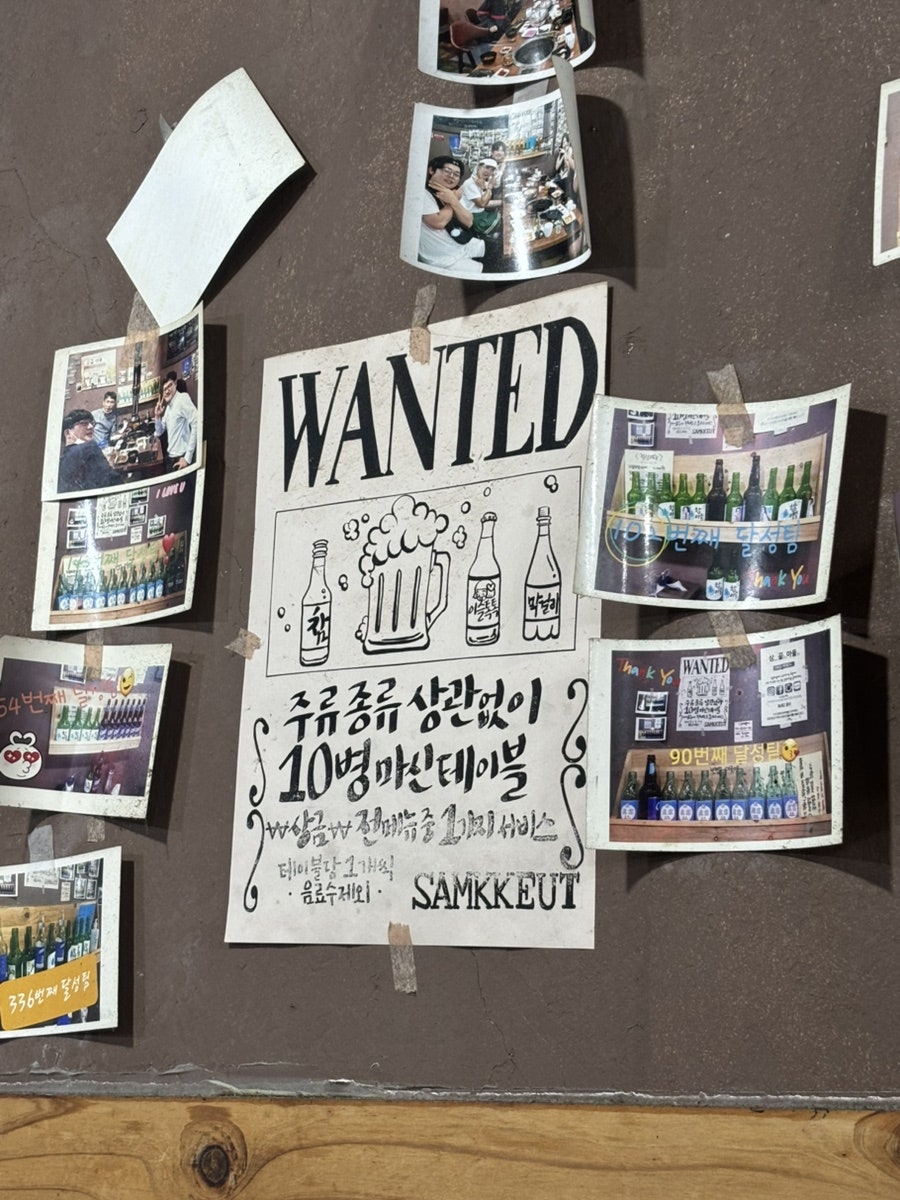 WANTED
참
이슬톡톡
막걸리
주류 종류 상관없이
10병 마신테이블
₩상금₩ 전메뉴중 1가지 서비스
테이블당 1개씩
·음료수제외·
SAMKKEUT
I LOVE U
54번째
336번째 달성팀
번째 달성팀
Thank You
Thank You
WANTED
90번째 달성팀